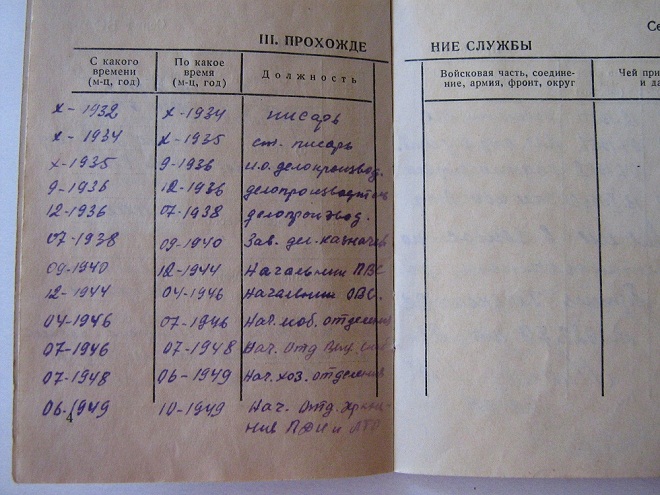 III. ПРОХОЖДЕ НИЕ СЛУЖБЫ
С какого времени (м-ц, год) По какое время (м-ц, год) Должность
x-1932 x-1934 писарь
x-1934 x-1935 ст. писарь
x-1935 9-1936 и.о. делопроизвод.
9-1936 12-1936 делопроизводитель
12-1936 07-1938 делопроизвод.
07-1938 09-1940 Зав. дел-казначей
09-1940 12-1944 Начальник ПВС
12-1944 04-1946 Начальник ОВС.
04-1946 07-1946 Нач. моб. отделения
07-1946 07-1948 Нач. Отд
07-1948 06-1949 Нач. хоз. отделения
06-1949 10-1949 Нач. Отд. хране-
ния
4
Се
Войсковая часть, соедине-
ние, армия, фронт, округ
Чей при
и да